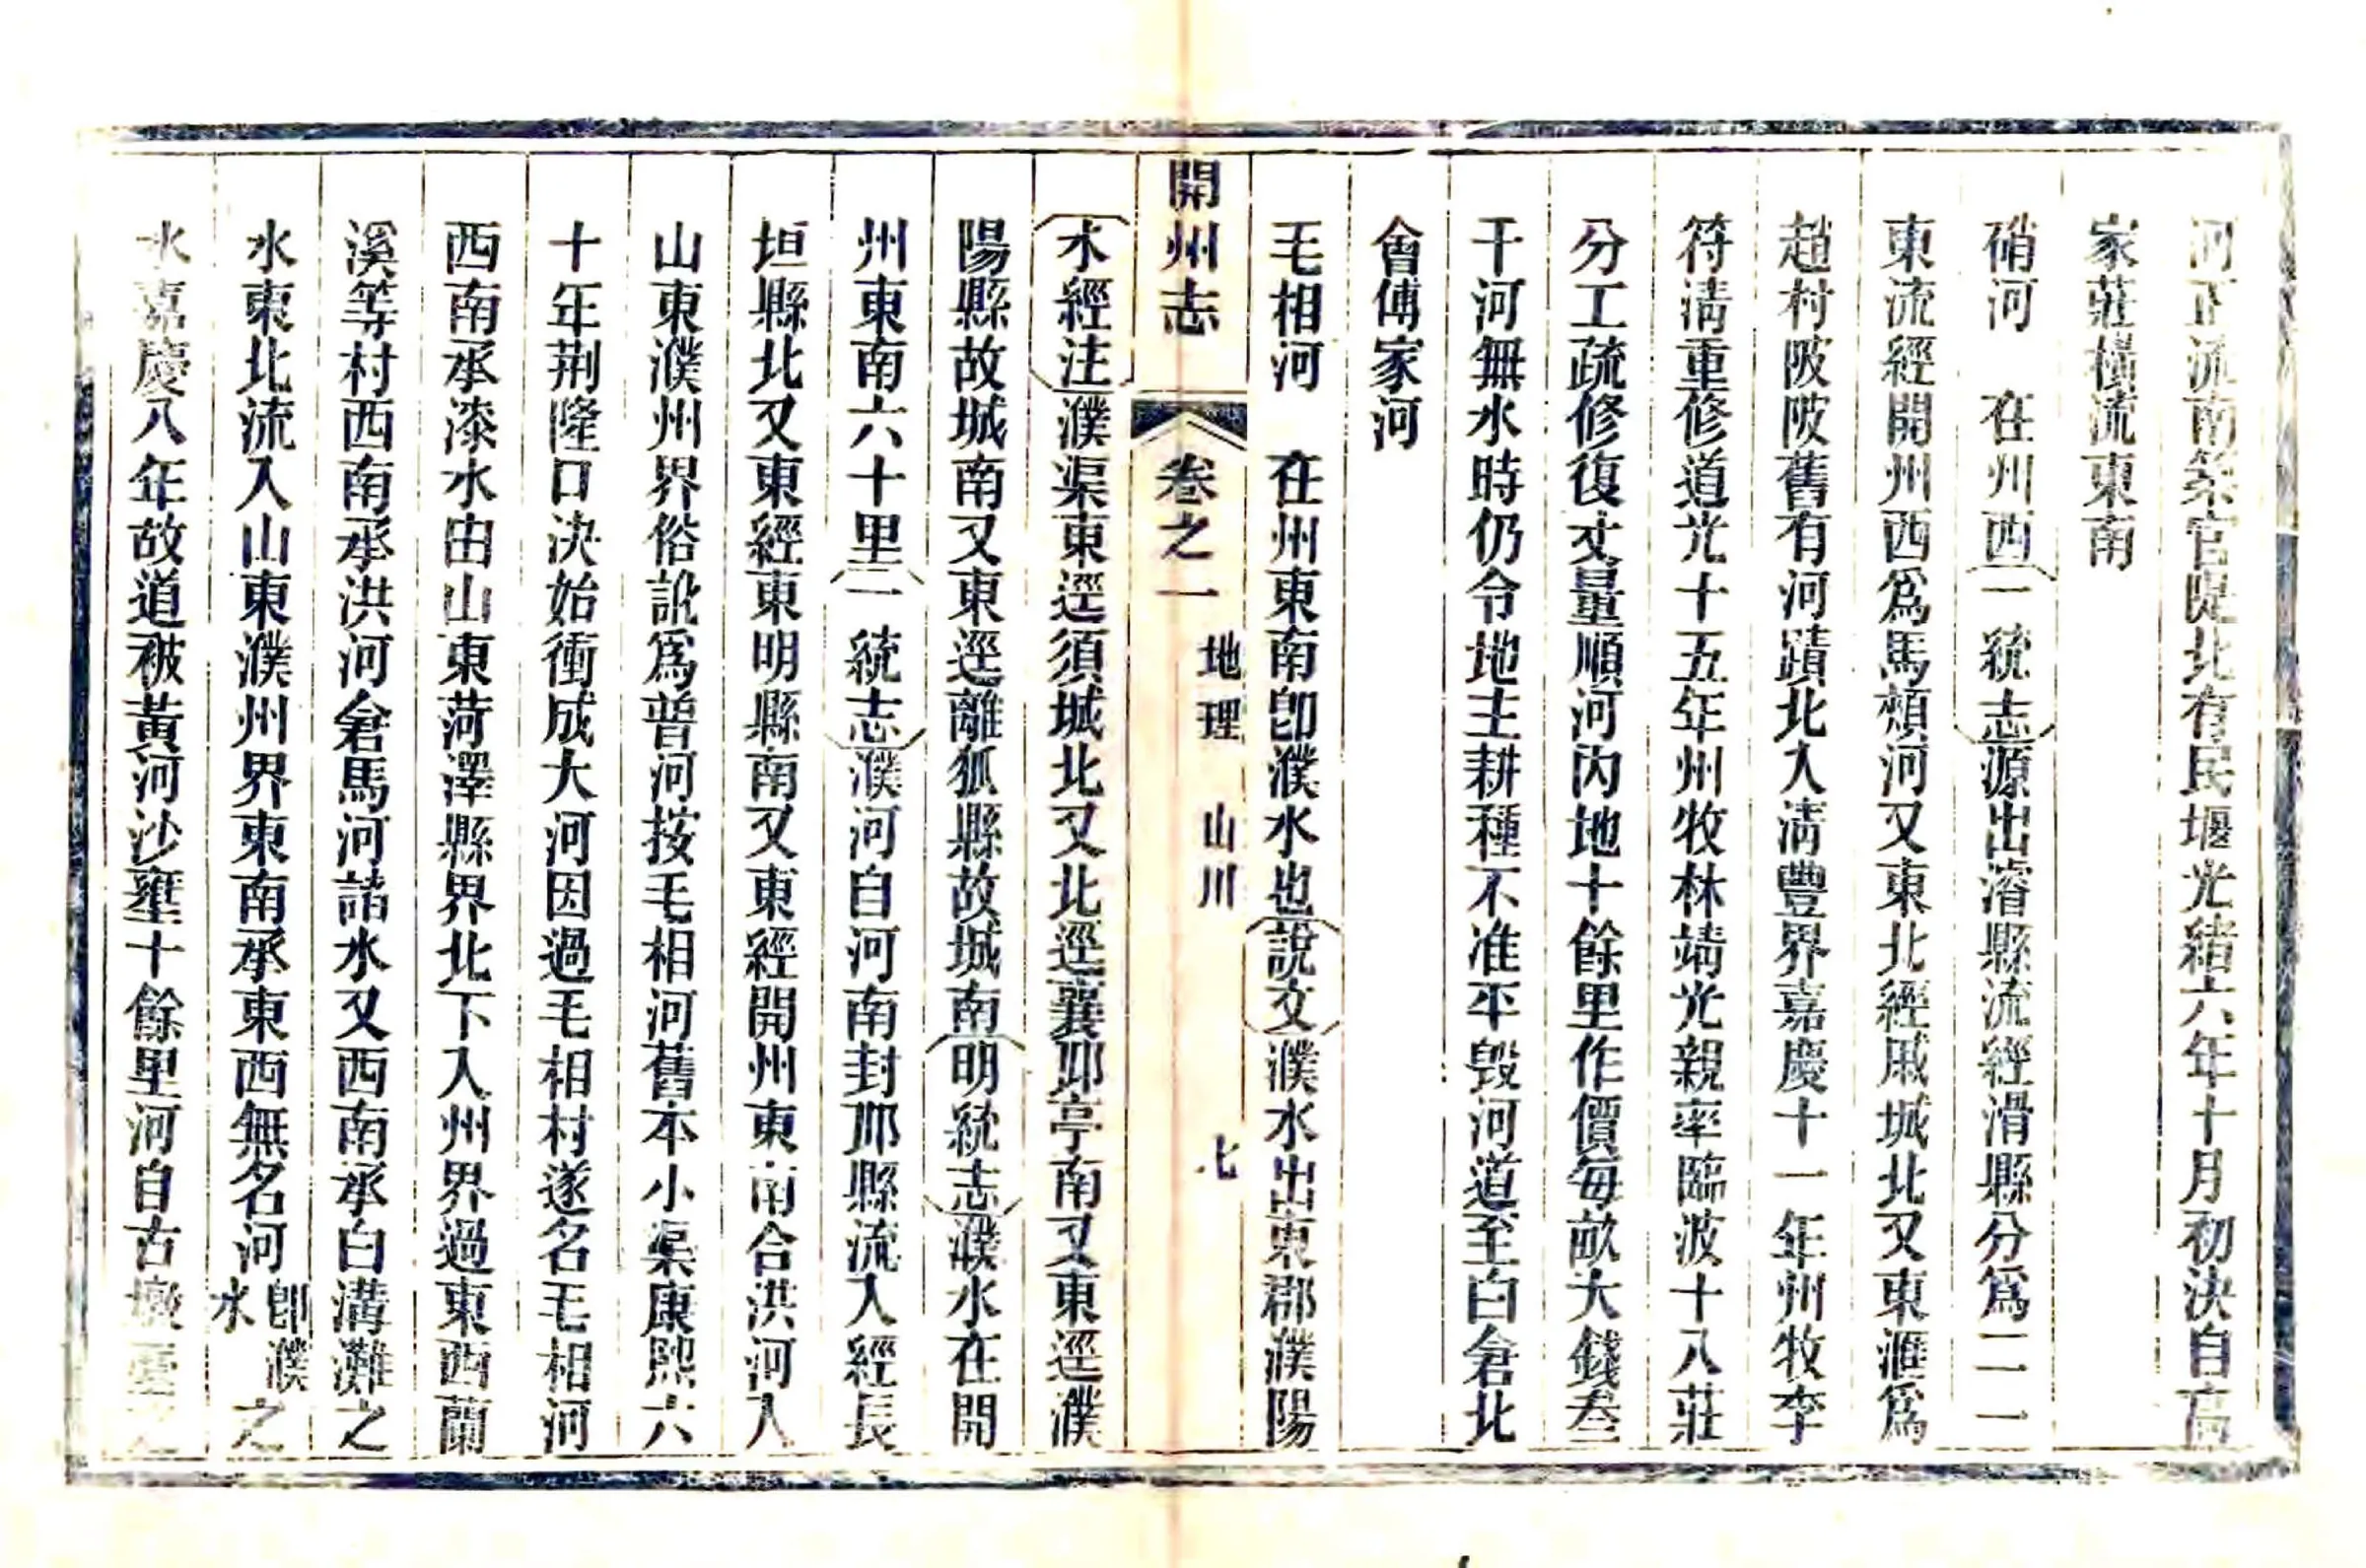 河正流南築官隄北有民堰光緒六年十月初決自高
家莊橫流東南
硝河　在州西一統志源出濬縣流經滑縣分爲二一
東流經開州西爲馬頰河又東北經戚城北又東滙爲
趙村陂陂舊有河蹟北入淸豐界嘉慶十一年州牧李
符淸重修道光十五年州牧林靖光親率臨波十八莊
分工疏修復丈量順河內地十餘里作價每畝大錢叁
千河無水時仍令地主耕種不准平毀河道至白倉北
會傅家河
毛相河　在州東南卽濮水也說文濮水出東郡濮陽
開州志　卷之一　地理　山川　七
水經注濮渠東逕須城北又北逕襄邱亭南又東逕濮
陽縣故城南又東逕離狐縣故城南明統志濮水在開
州東南六十里一統志濮河自河南封邱縣流入經長
垣縣北又東經東明縣南又東經開州東南合洪河入
山東濮州界俗訛爲普河按毛相河舊本小渠康熙六
十年荆隆口決始衝成大河因過毛相村遂名毛相河
西南承漆水由山東菏澤縣界北下入州界過東西蘭
溪等村西南承洪河倉馬河諸水又西南承白溝灘之
水東北流入山東濮州界東南承東西無名河卽濮水之
水嘉慶八年故道被黃河沙壅十餘里河自古墩臺